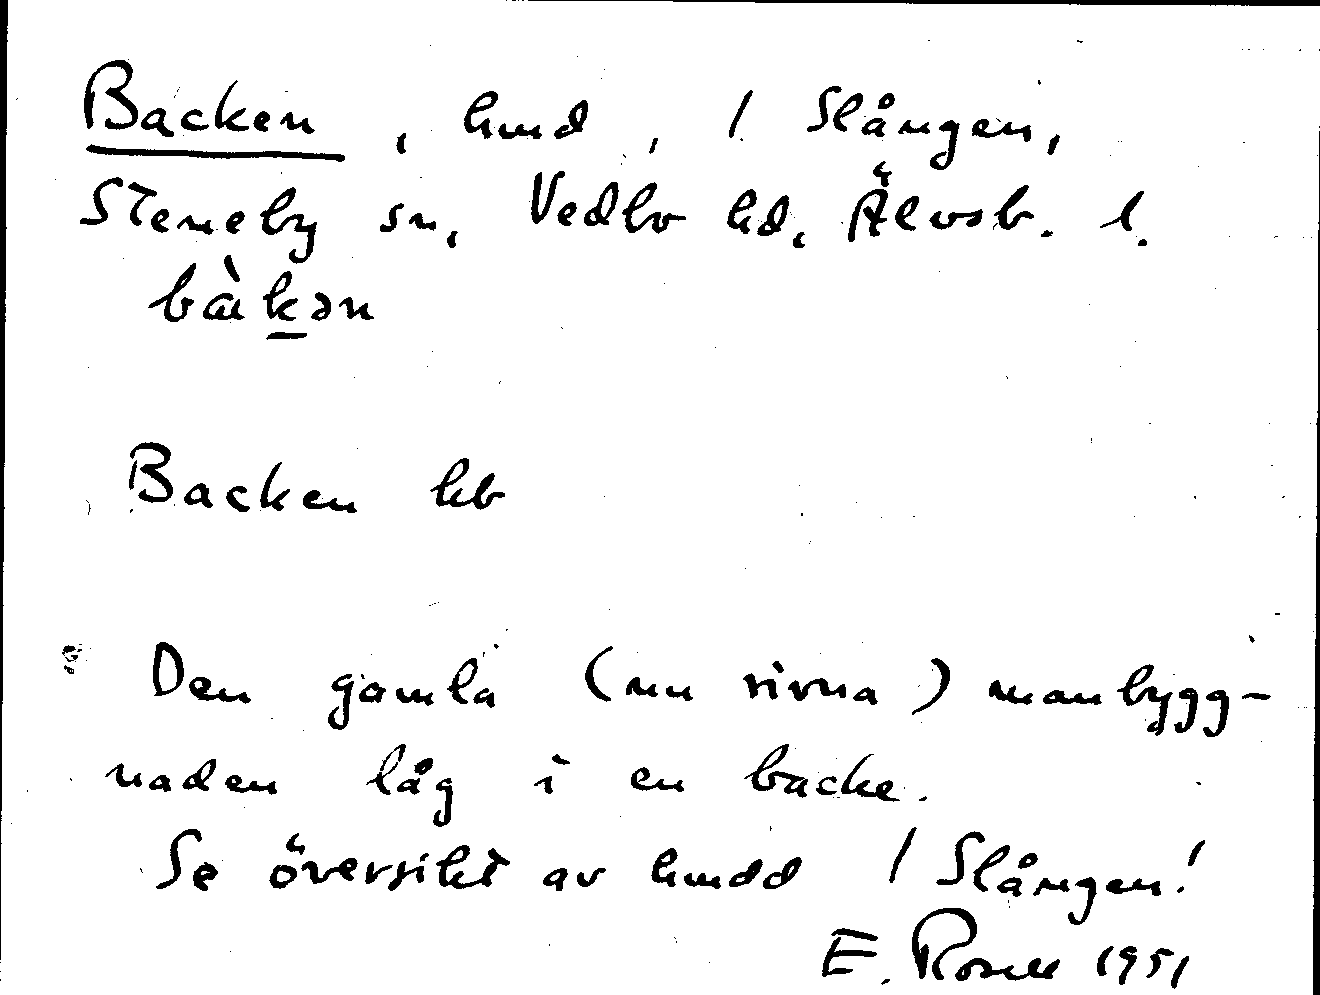 Backen, hmd, 1 Slången,
Steneby sn, Vedbo hd, Älvsb. l.
bàkən
Backen kb
Den gamla (nu rivna) manbygg-
naden låg i en backe.
Se översikt av hmdd 1 Slången!
E. Rosell 1951